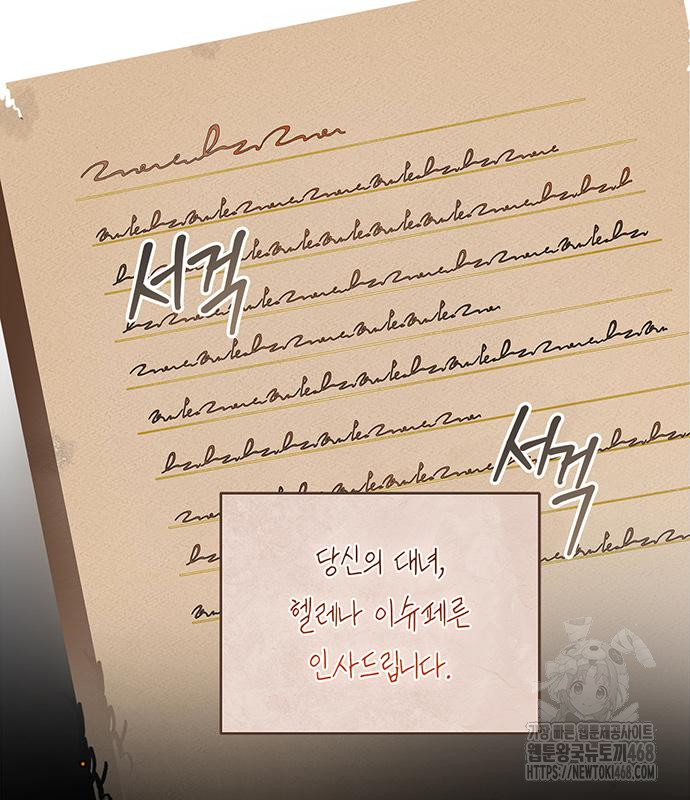 서걱
서걱
당신의 대녀,
헬레나 이슈페른
인사드립니다.
가장 빠른 웹툰제공사이트
웹툰왕국뉴토끼468
HTTPS://NEWTOKI468.COM